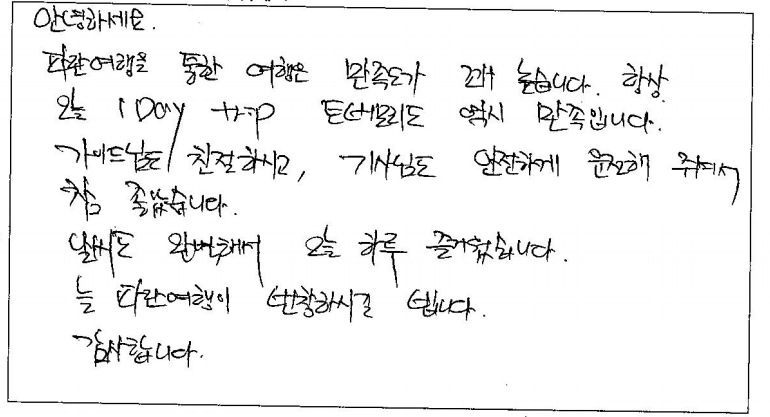 안녕하세요.
파란여행을 통한 여행은 만족도가 꽤 높습니다. 항상
오늘 1 Day trip 도 역시 만족입니다.
가이드님도 친절하시고, 기사님도 안전하게 운전해 주셔서
참 좋았습니다.
날씨도 완벽해서 오늘 하루 즐거웠습니다.
늘 파란여행이 번창하시길 빕니다.
감사합니다.